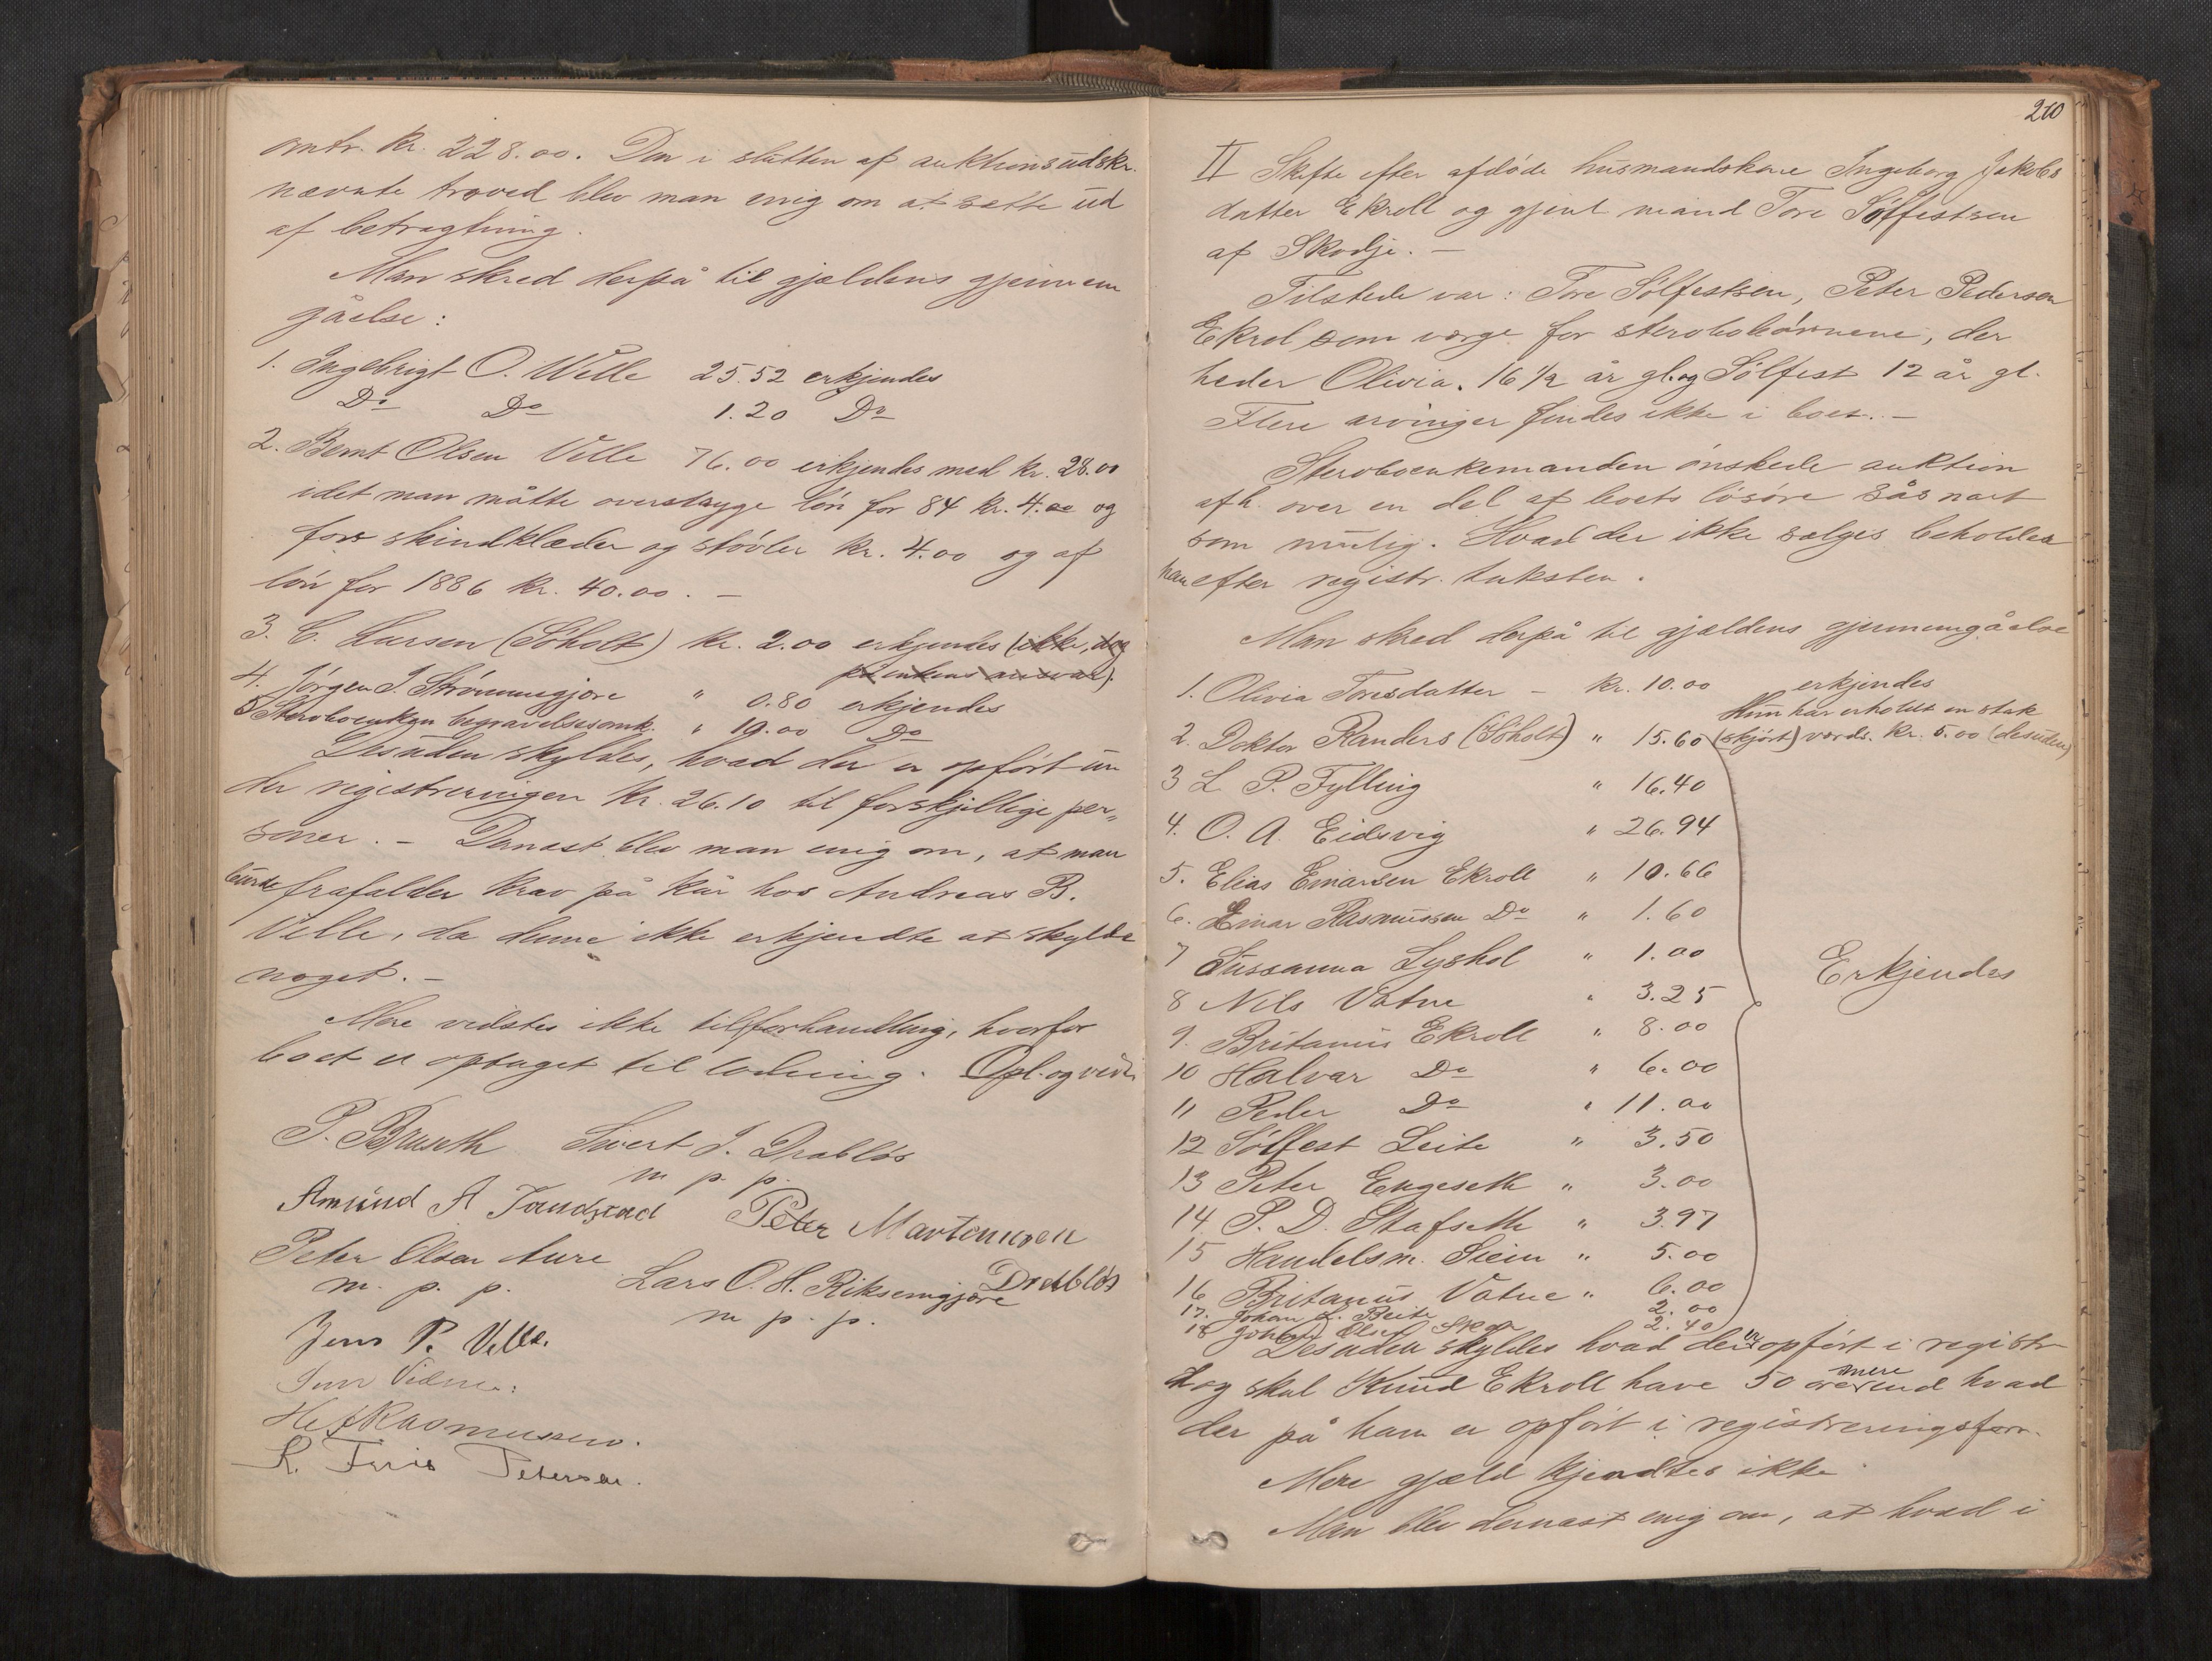 omtr. kr. 228.00. Den i slutten af auktionsudskr.
nævnte træved blev man enig om at sætte ud
af betragtning.
Man skred derpå til gjældens gjennem
gåelse:
1. Ingebrigt O. Welle 25.52 erkjendes
Do Do 1.20 Do
2. Bernt Olsen Velle 76.00 erkjendes med kr. 28.00
idet man måtte overstryge løn for 84 kr. 4.00 og
for skindklæder og støvler kr. 4.00 og af
løn for 1886 kr. 40.00. —
3. C. Larsen (Søholt) kr. 2.00 erkjendes (ikke, dog
enkens ansvar).
4. Jørgen J. Strømmegjøre " 0.80 erkjendes
5 Stervboenken begravelsesomk. " 19.00 Do
Desuden skyldes, hvad der er opført un
der registreringen kr. 26.10 til forskjellige per„
soner. — Dernæst blev man enig om, at man
burde frafalder krav på kår hos Andreas B.
Velle, da denne ikke erkjendte at skylde
noget. —
Mere vidstes ikke til forhandling, hvorfor
boet er optaget til lodning. Opl. og vedt.
P. Bruseth Sivert J. Drabløs
m p. p.
Amund A Tandstad Peter Martenusen
Drabløs
Peter Olsen Aure
m. p. p. Lars O. H. Riksemgjøre
m p. p.
Jens P. Velle.
H. Rasmussen.
Petersen.
260
II Skifte efter afdøde husmandskone Ingeborg Jakobs
datter Ekroll og gjenl mand Tore Sølfestsen
af Skodje. —
Tilstede var: Tore Sølfestsen, Peter Pedersen
Ekrol som værge for stervbobørnene, der
heder Olivia. 16 1/2 år gl. og Sølfest 12 år gl.
Flere arvinger findes ikke i boet. —
Stervboenkemanden ønskede auktion
afh. over en del af boets løsøre såsnart
som mulig. Hvad der ikke sælges beholder
han efter registr. taksten.
Man skred derpå til gjældens gjennemgåelse
1. Olivia Toresdatter — kr. 10.00 erkjendes
Hun har erholdt en stak
2. Doktor Randers (Søholt) " 15.60 (skjørt) værds. kr. 5.00 (desuden)
3 L. P. Fylling " 16.40
4. O. A. Eidsvig " 26.94
5. Elias Einarsen Ekroll " 10.66
6. Einar Rasmussen Do " 1.60
7 Sussanna Lyshol " 1.00
8 Nils Vatne " 3.25
Erkjendes
9. Britanus Ekroll " 8.00
10 Halvar Do " 6.00
11 Peder Do " 11.00
12 Sølfest Leite " 3.50
13 Peter Engeseth " 3.00
14 P. D. Stafseth " 3.97
15 Handelsm. Siem " 5.00
16 Britanus Vatne " 6.00
17. Johan L. Beite 2.00
18 Johan Olsen 2.40
Desuden skyldes hvad der er opført i registr
dog skal Knud Ekroll have 50 øre mere end hvad
der på ham er opført i registreringsforr.
Mere gjæld kjendtes ikke
Man blev dernæst enig om, at hvad i